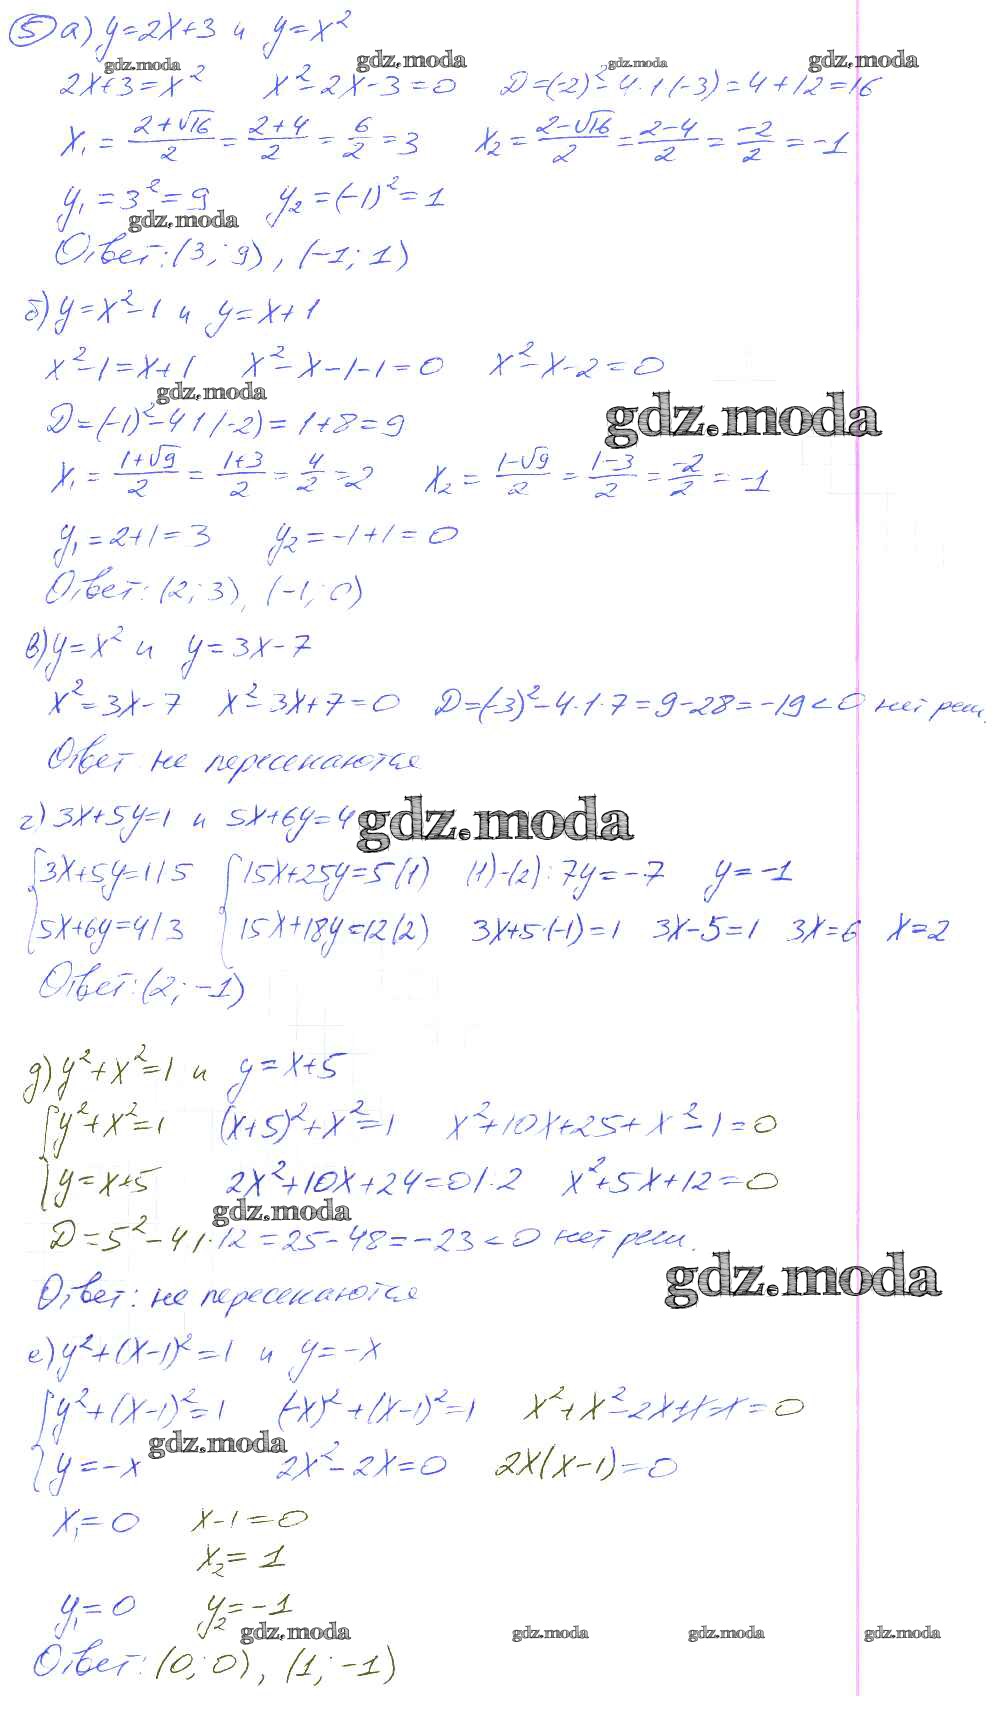 5 а) y=2x+3 и y=x²
gdz.moda gdz.moda gdz.moda gdz.moda
2x+3=x² x²-2x-3=0 D=(-2)²-4·1(-3)=4+12=16
x₁ = (2+√16)/2 = (2+4)/2 = 6/2 = 3 x₂ = (2-√16)/2 = (2-4)/2 = -2/2 = -1
y₁=3²=9 y₂=(-1)²=1
gdz.moda
Ответ: (3; 9), (-1; 1)
б) y=x²-1 и y=x+1
x²-1=x+1 x²-x-1-1=0 x²-x-2=0
gdz.moda gdz.moda
D=(-1)²-4·1(-2)=1+8=9
x₁ = (1+√9)/2 = (1+3)/2 = 4/2 = 2 x₂ = (1-√9)/2 = (1-3)/2 = -2/2 = -1
y₁=2+1=3 y₂=-1+1=0
Ответ: (2; 3), (-1; 0)
в) y=x² и y=3x-7
x²=3x-7 x²-3x+7=0 D=(-3)²-4·1·7=9-28=-19<0 нет реш.
Ответ не пересекаются
г) 3x+5y=1 и 5x+6y=4
gdz.moda
{3x+5y=1 |5 {15x+25y=5 (1) (1)-(2): 7y=-7 y=-1
5x+6y=4 |3 15x+18y=12 (2) 3x+5·(-1)=1 3x-5=1 3x=6 x=2
Ответ: (2; -1)
д) y²+x²=1 и y=x+5
{y²+x²=1 (x+5)²+x²=1 x²+10x+25+x²-1=0
y=x+5 2x²+10x+24=0 |·2 x²+5x+12=0
gdz.moda
D=5²-4·1·12=25-48=-23<0 нет реш.
gdz.moda
Ответ: не пересекаются
е) y²+(x-1)²=1 и y=-x
{y²+(x-1)²=1 (-x)²+(x-1)²=1 x²+x²-2x+1-1=0
gdz.moda
y=-x 2x²-2x=0 2x(x-1)=0
x₁=0 x-1=0
x₂=1
y₁=0 y₂=-1
gdz.moda gdz.moda gdz.moda gdz.moda
Ответ: (0; 0), (1; -1)